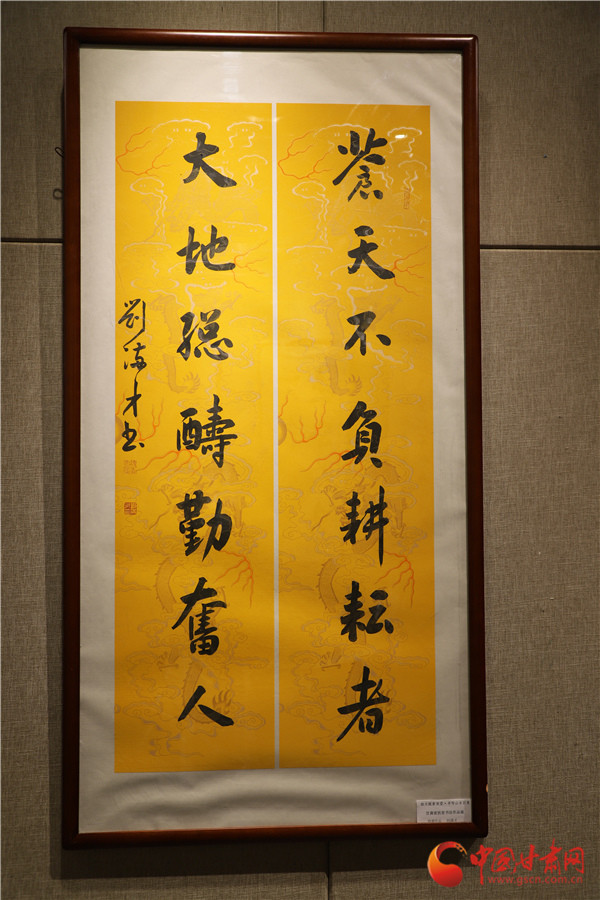 蒼天不負耕耘者
大地總醻勤奮人
劉满才书
中国甘肃网
www.gscn.com.cn